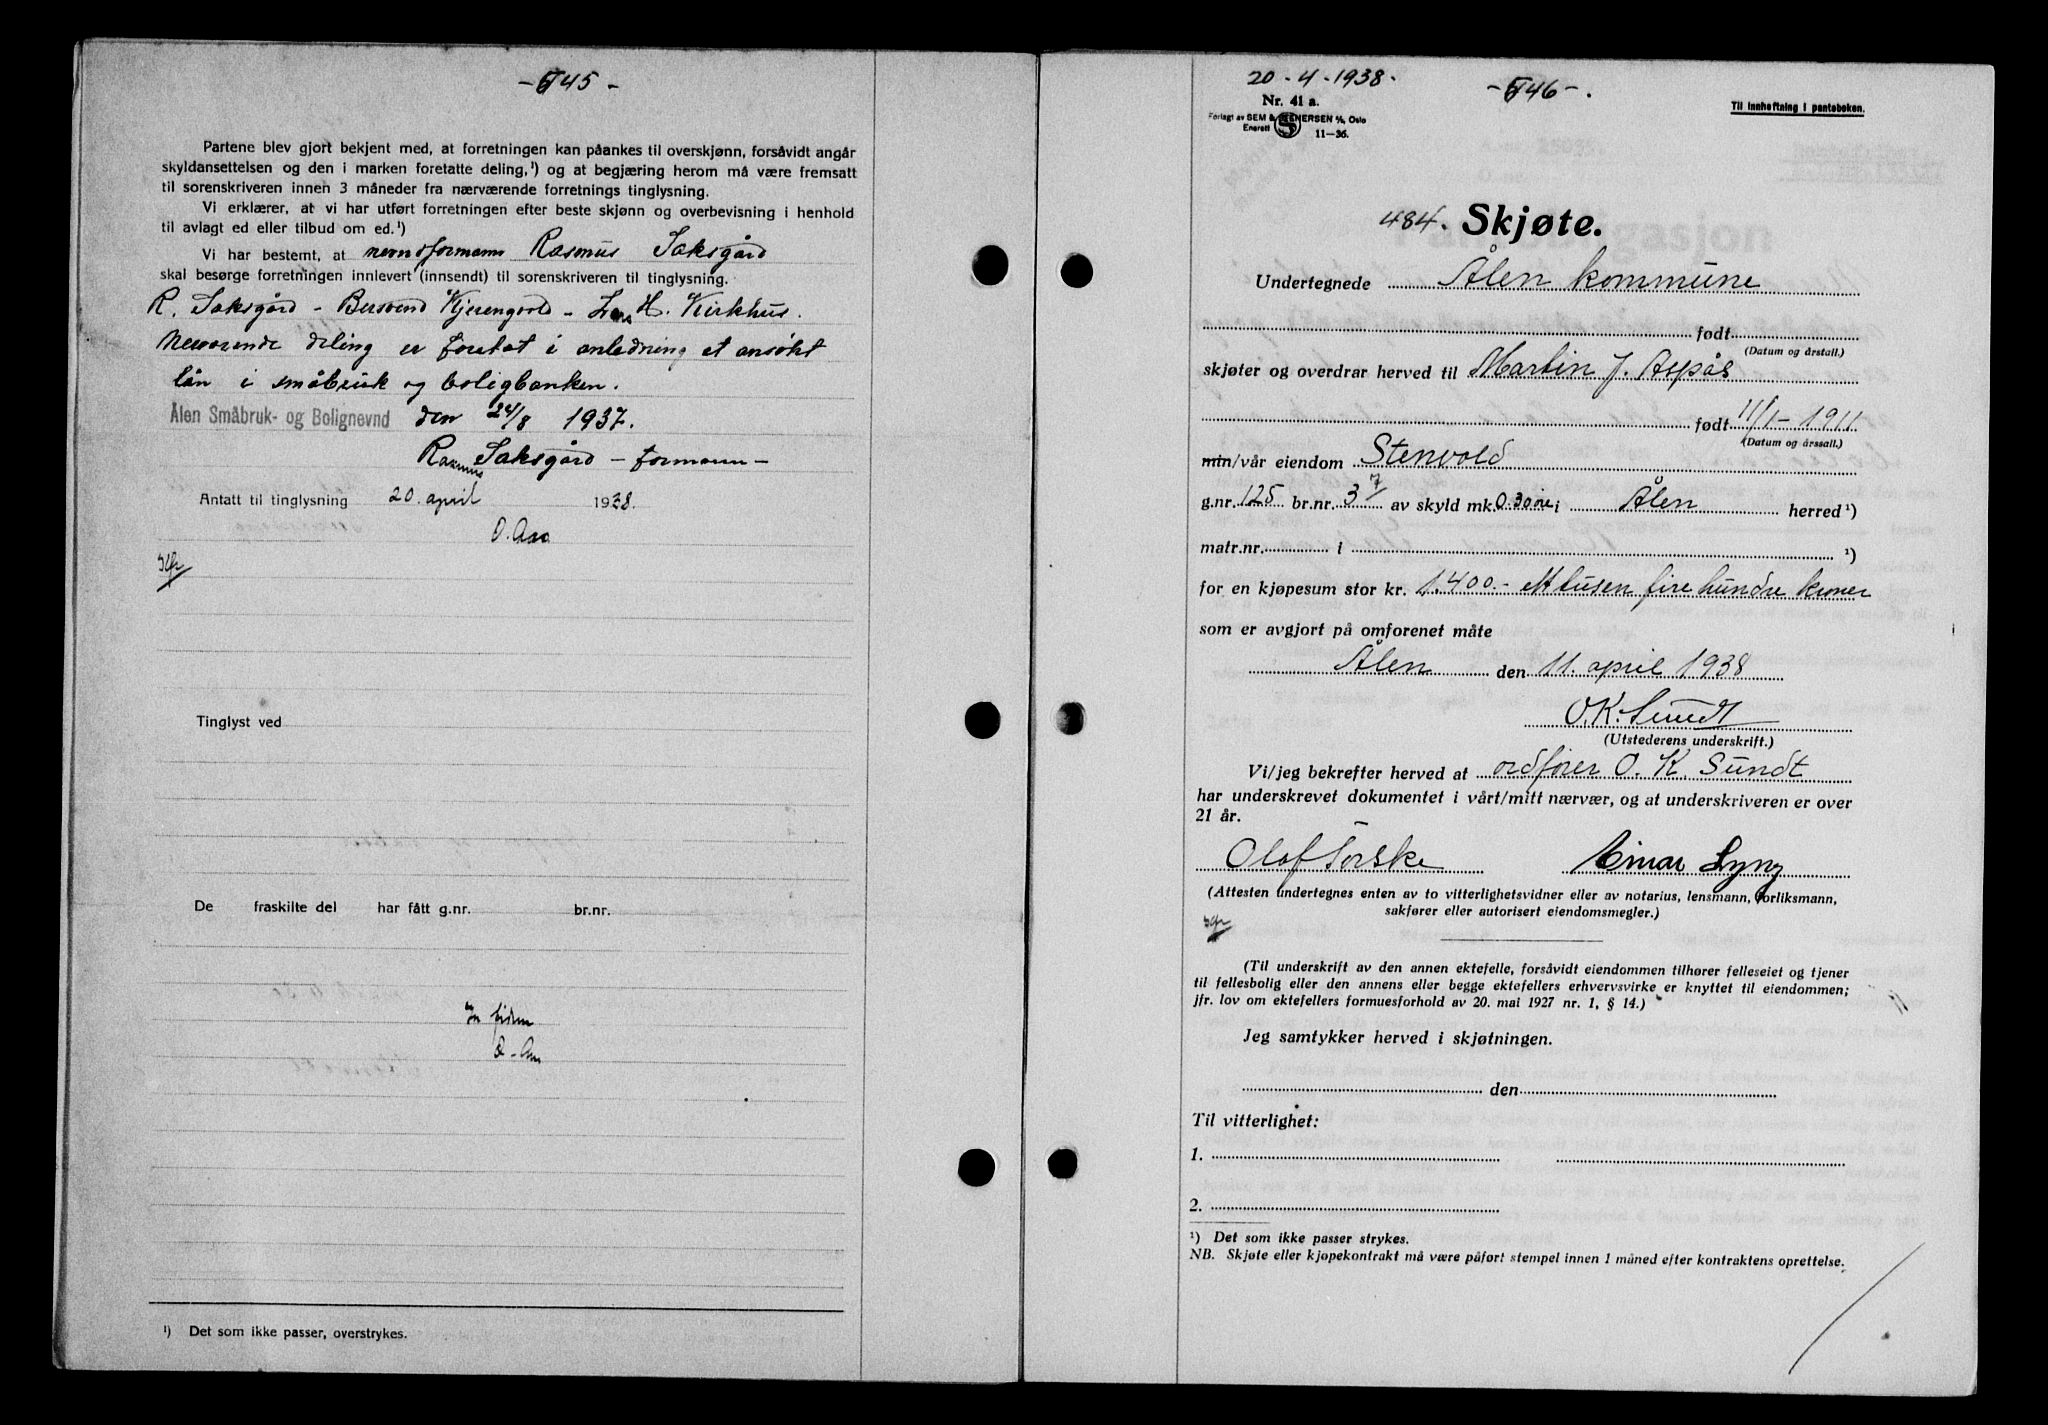 - 545 -
Partene blev gjort bekjent med, at forretningen kan påankes til overskjønn, forsåvidt angår
skyldansettelsen og den i marken foretatte deling,¹) og at begjæring herom må være fremsatt
til sorenskriveren innen 3 måneder fra nærværende forretnings tinglysning.
Vi erklærer, at vi har utført forretningen efter beste skjønn og overbevisning i henhold
til avlagt ed eller tilbud om ed.¹)
Vi har bestemt, at nevndsformann Rasmus Saksgård
skal besørge forretningen innlevert (innsendt) til sorenskriveren til tinglysning.
R. Saksgård - Bersvend Kjerengvold - Lars H. Kirkhus.
Neværende deling er foretat i anledning et ansøkt
lån i småbruk og boligbanken.
Ålen Småbruk- og Bolignevnd den 24/8 1937.
Rasmus Saksgård - formann -
Antatt til tinglysning 20. april 1938.
O. Aas
Tinglyst ved
De fraskilte del har fått g.nr. br.nr.
In fidem
O. Aas
¹) Det som ikke passer, overstrykes.
20 - 4 - 1938.
- 546 -.
Til innheftning i panteboken.
Nr. 41 a.
Forlagt av SEM & STENERSEN A/S, Oslo
Enerett 11—36.
484. Skjøte.
Undertegnede Ålen kommune
født
(Datum og årstall.)
skjøter og overdrar herved til Martin J. Aspås
født 11/1 - 1911.
(Datum og årssall.)
min/vår eiendom Stenvold
g.nr. 125 br.nr. 37 av skyld mk. 0.30 øre i Ålen herred ¹)
matr.nr. i ¹)
for en kjøpesum stor kr. 1.400.- ett tusen fire hundre kroner
som er avgjort på omforenet måte
Ålen den 11. april 1938
O. K. Sundt
(Utstederens underskrift.)
Vi/jeg bekrefter herved at ordfører O. K. Sundt
har underskrevet dokumentet i vårt/mitt nærvær, og at underskriveren er over
21 år.
Olaf Torske Einar Lyng
(Attesten undertegnes enten av to vitterlighetsvidner eller av notarius, lensmann, forliksmann,
sakfører eller autorisert eiendomsmegler.)
(Til underskrift av den annen ektefelle, forsåvidt eiendommen tilhører felleseiet og tjener
til fellesbolig eller den annens eller begge ektefellers erhvervsvirke er knyttet til eiendommen;
jfr. lov om ektefellers formuesforhold av 20. mai 1927 nr. 1, § 14.)
Jeg samtykker herved i skjøtningen.
den
Til vitterlighet:
1.
2.
¹) Det som ikke passer strykes.
NB. Skjøte eller kjøpekontrakt må være påført stempel innen 1 måned efter kontraktens oprettelse.